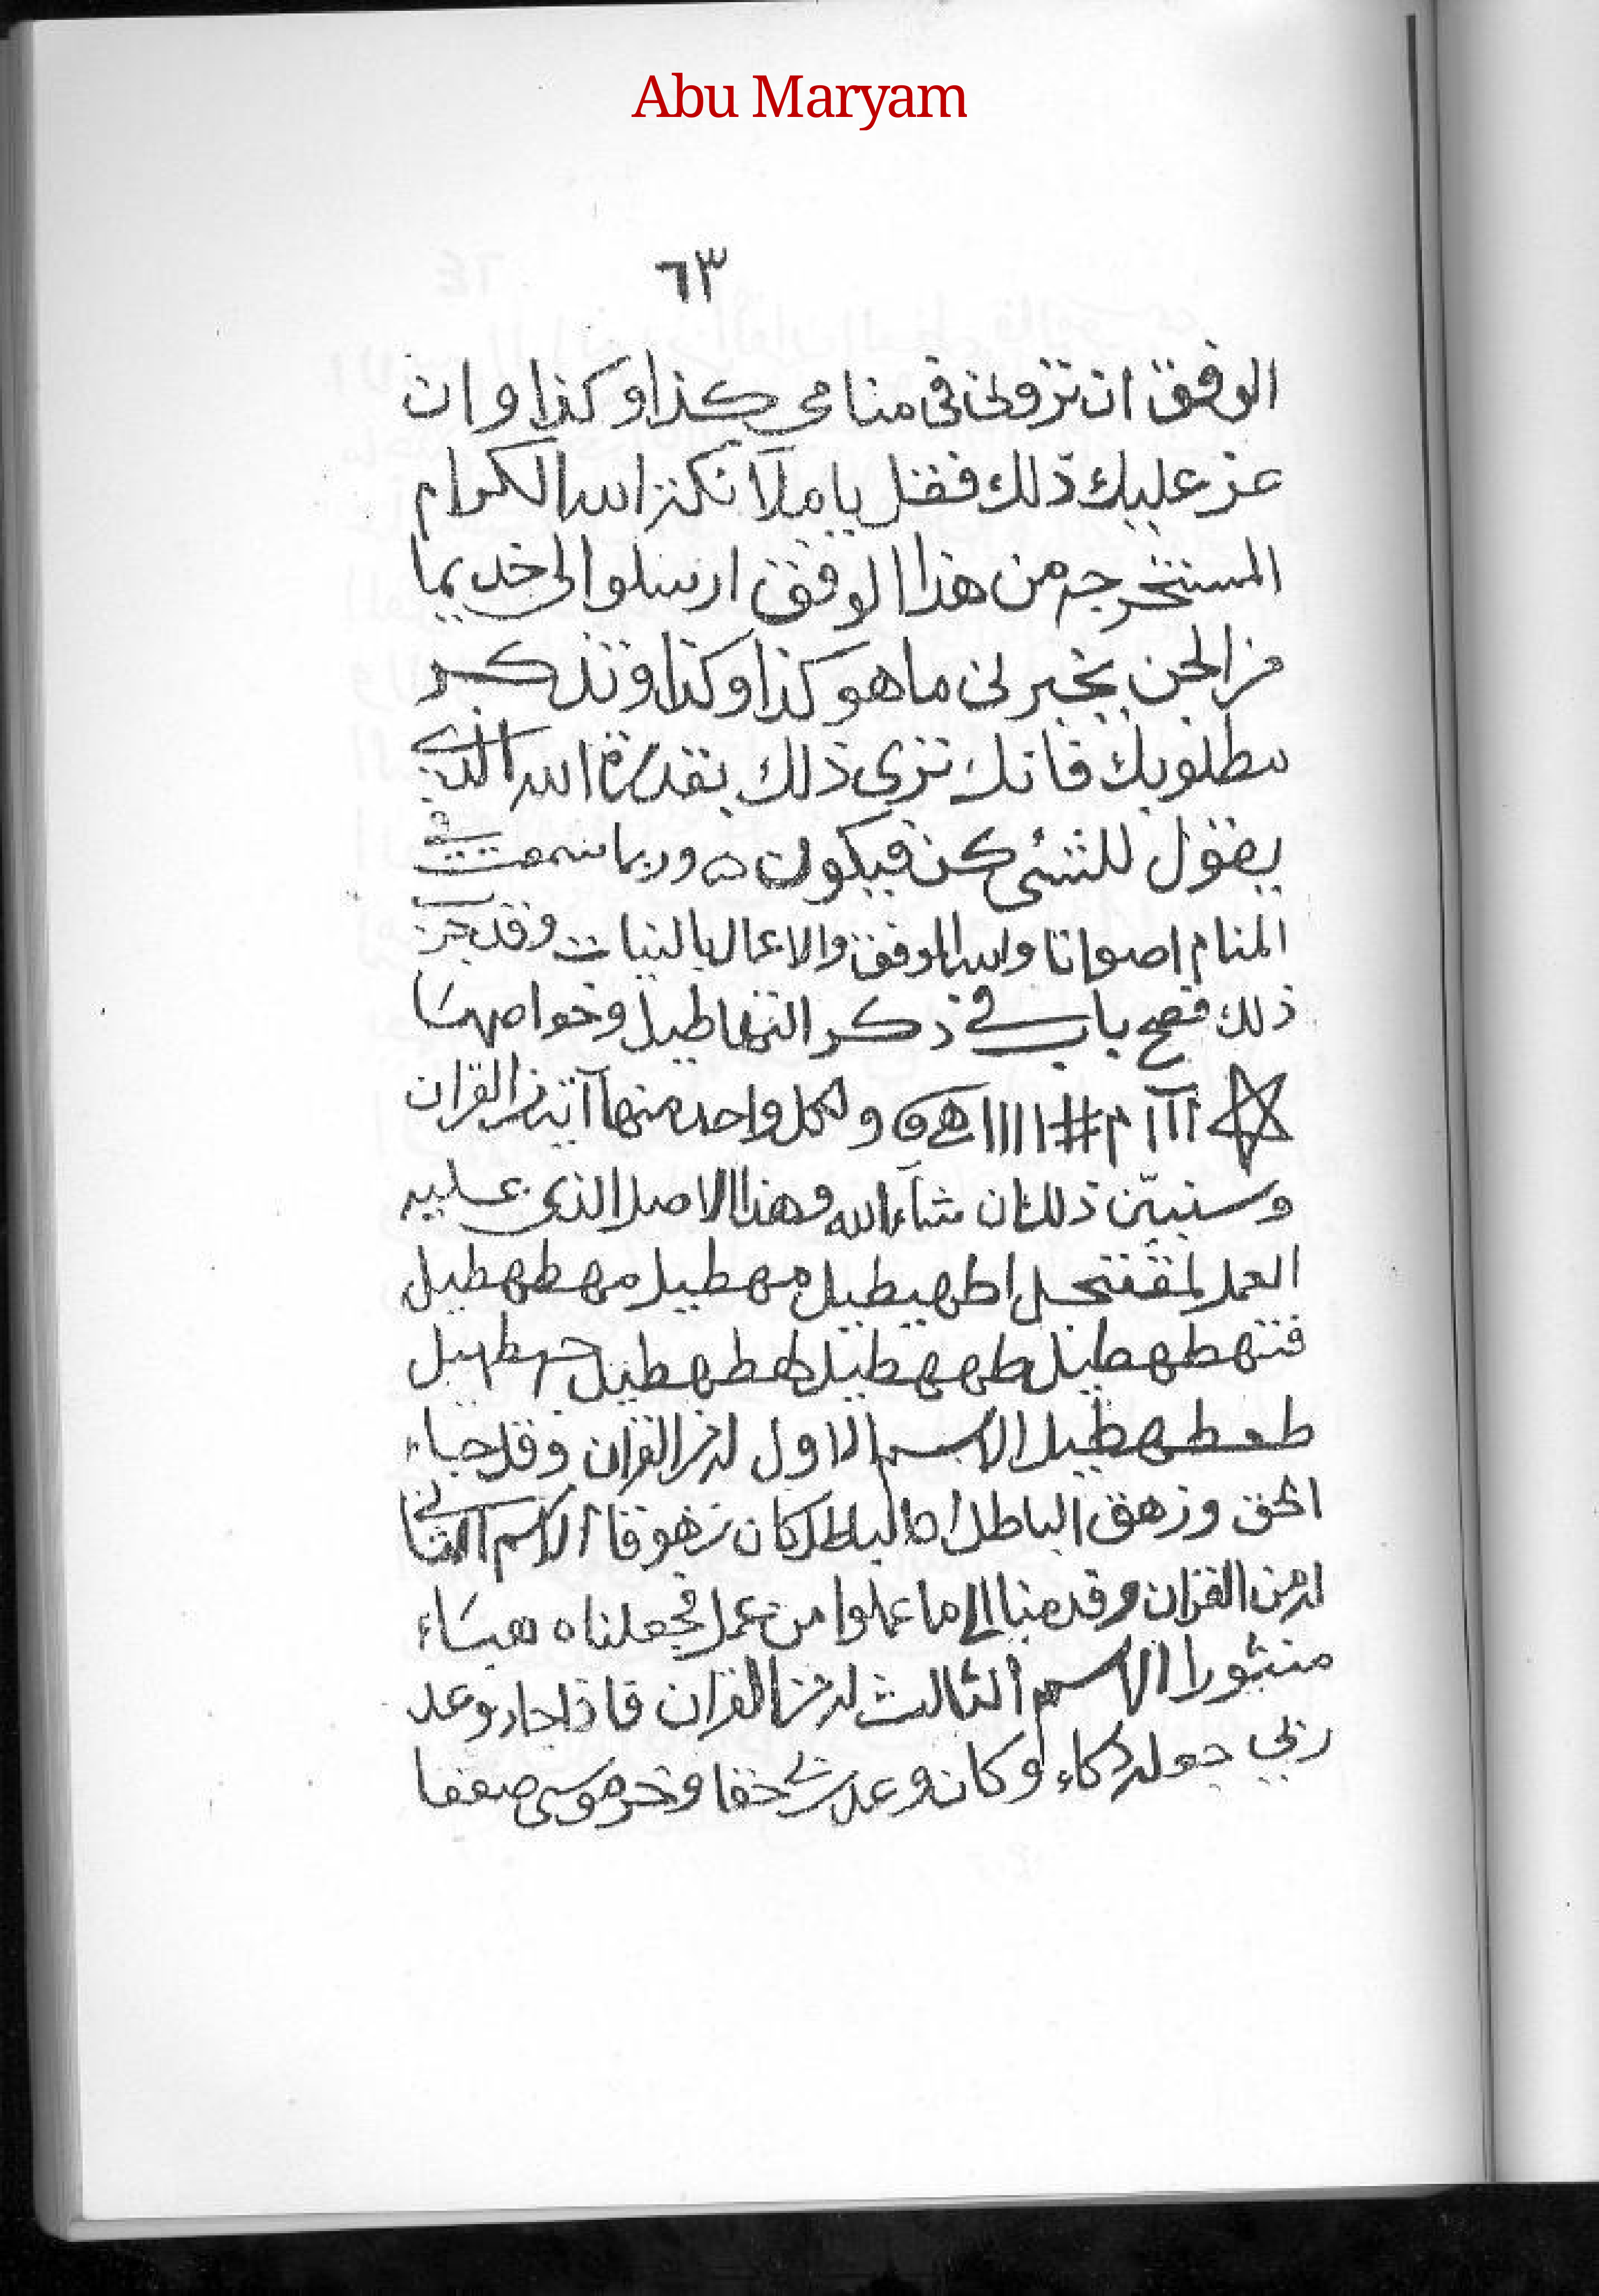 Abu Maryam
٦٣
الوفق ان تزولى فى منامى كذا وكذا وان
عز عليك ذلك فقل يا ملآئكة الله الكرام
المستخرجه من هذا الوفق ارسلوا الى خديما
من الجن يخبرنى ما هو كذا وكذا وتذكر
مطلوبك فانك ترى ذلك بقدرة الله الذى
يقول للشئ كن فيكون ه وربما سمعت فى
المنام اصواتا والله الموفق والاعمال بالنيات وقد جرب
ذلك فصح باب فى ذكر التهاطيل وخواصها
ولكل واحد منها آية من القران
وسنبيّن ذلك ان شآء الله وهذا الاصل الذى عليه
العمل لمقفنجل اطهيطيل مهطيل مهطهطيل
فتهطهطيل طههطيل طهطهطيل جهطهيل
الاسم الاول له من القران وقل جاء
الحق وزهق الباطل ان الباطل كان زهوقا الاسم الثانى
له من القران وقدمنا الى ما عملوا من عمل فجعلناه هباء
منثورا الاسم الثالث له من القران فاذا جاء وعد
ربى جعله دكاء وكان وعد ربى حقا وخر موسى صعقا